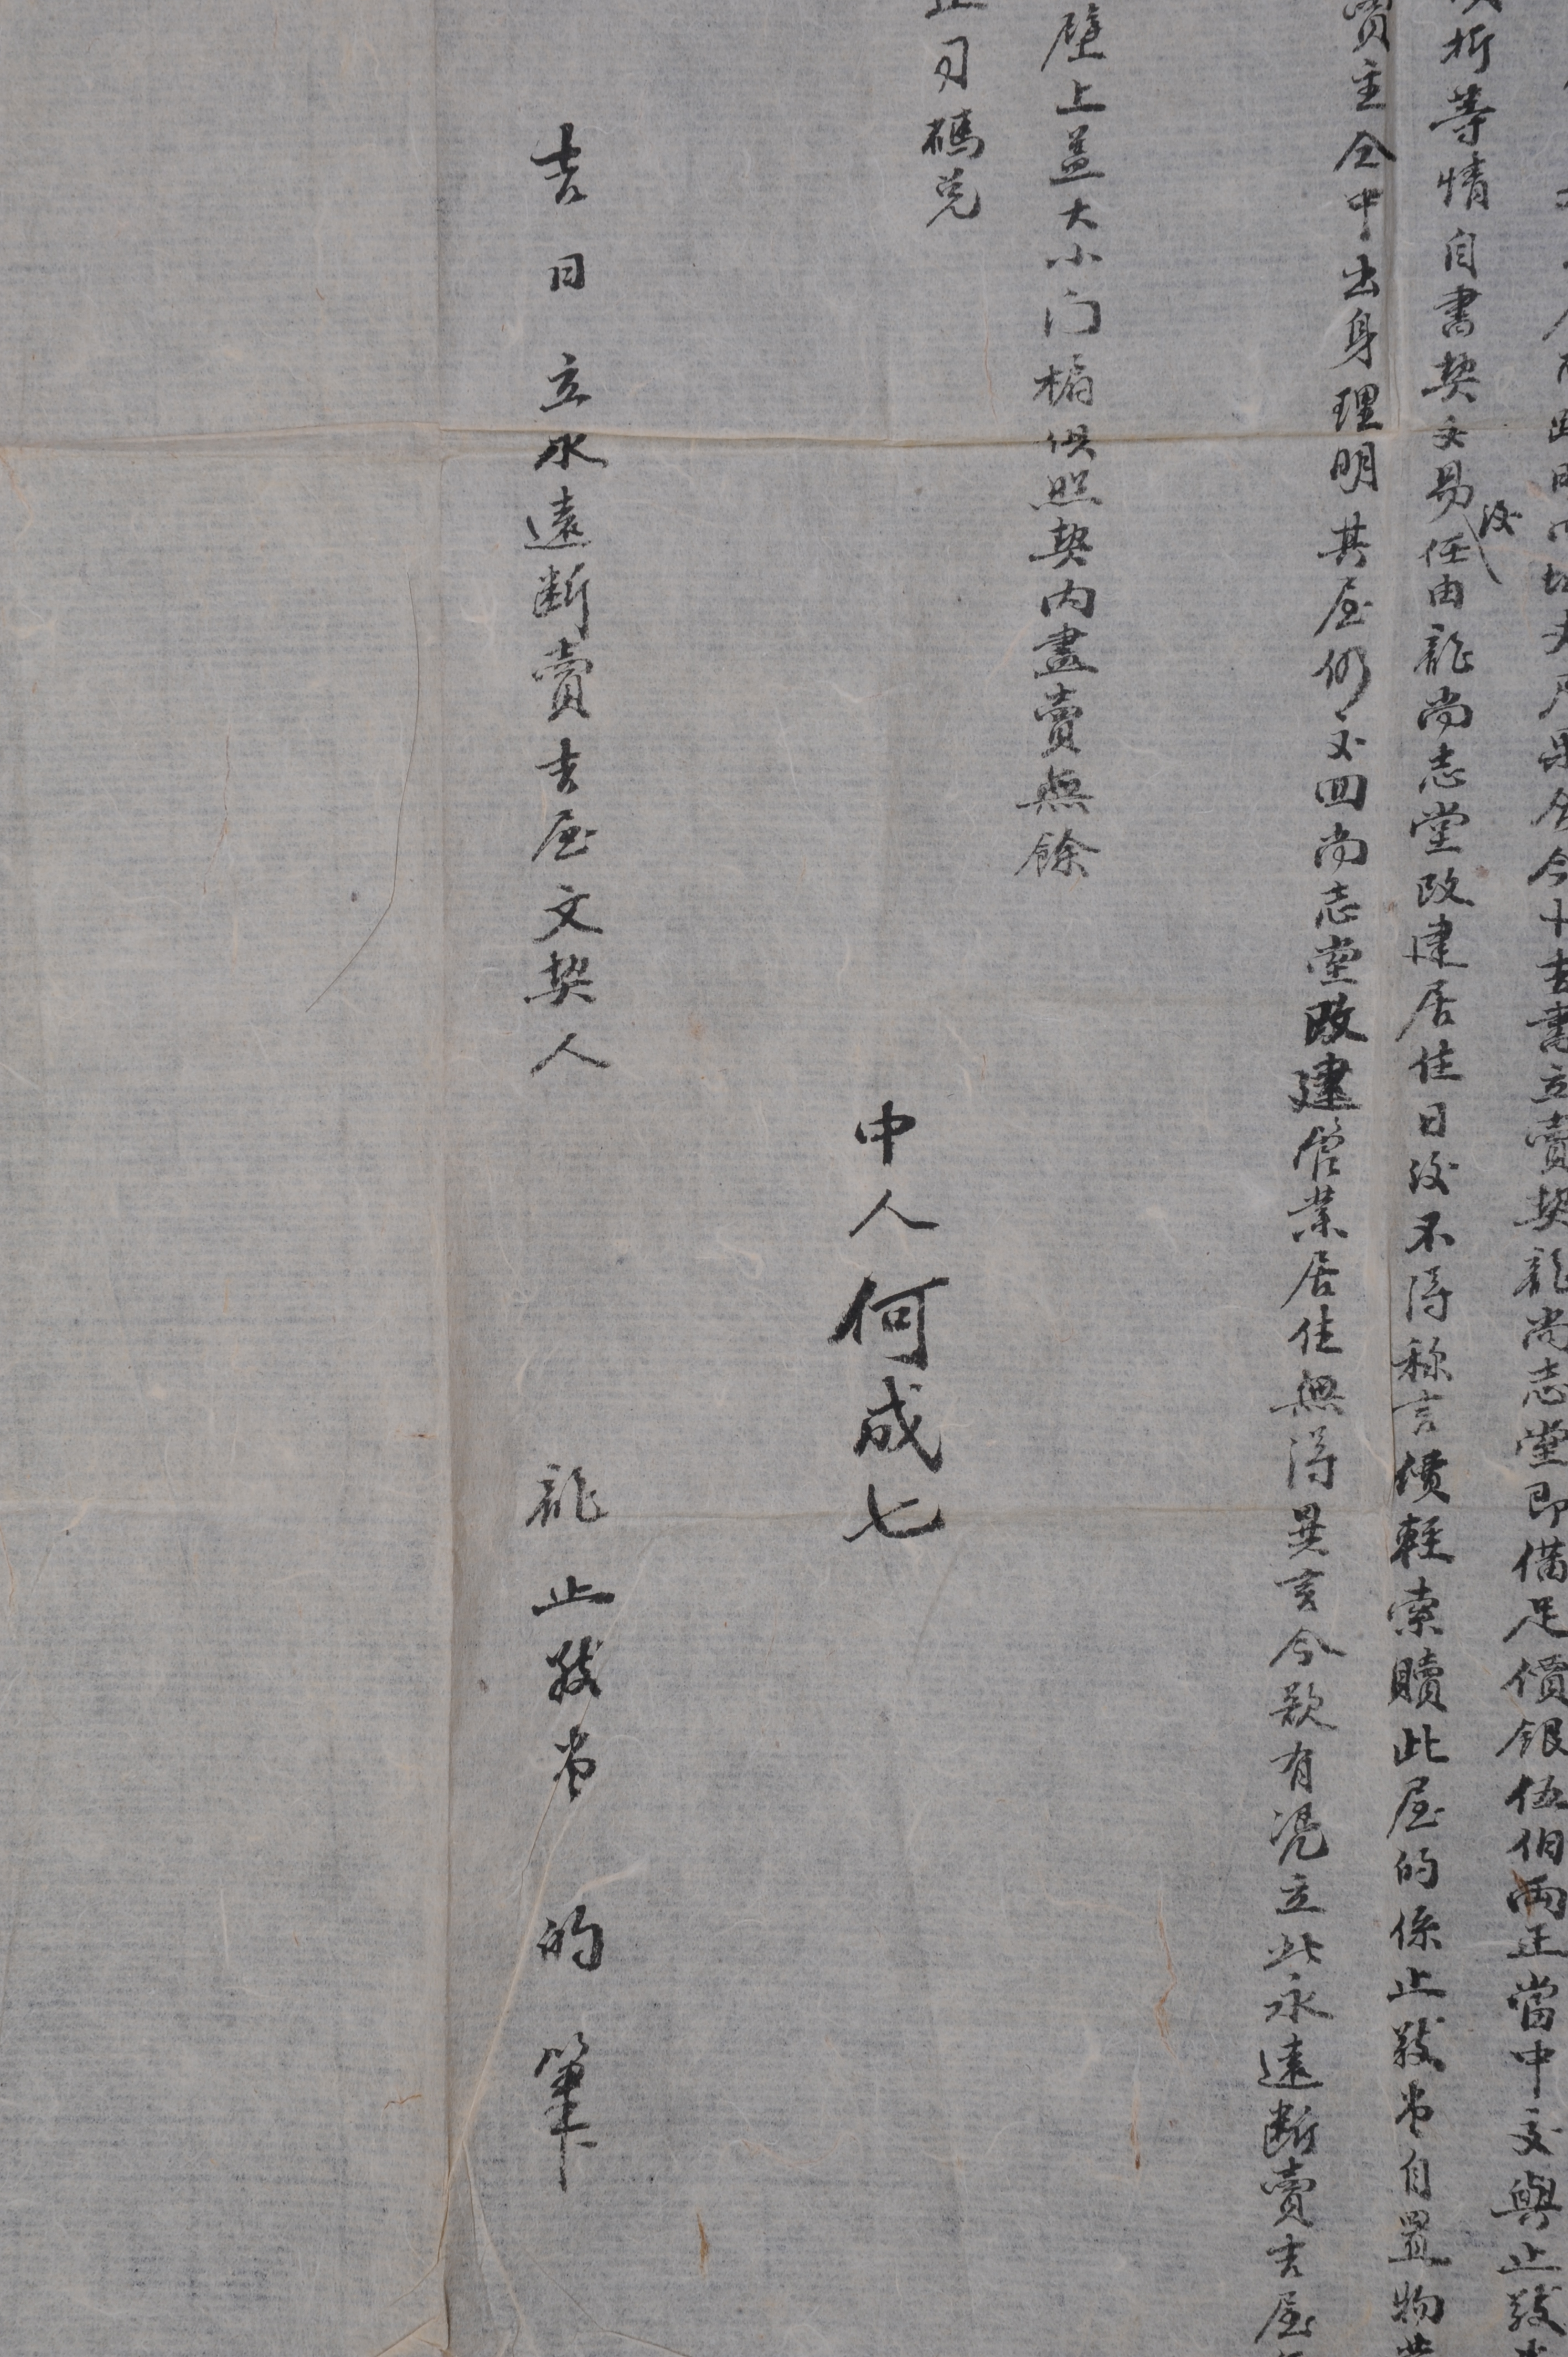 今十吉書立賣契龍尚志堂即備足價銀伍佰兩正當中交與止
折等情自書契交易後任由龍尚志堂改建居住日後不得称言價輕索贖此屋的係止發堂自置物
賣主仝中出身理明其屋仍交回尚志堂改建管業居住無得異言今欲有凭立此永遠断賣吉屋
壁上盖大小门楄俱照契内盡賣無餘
正司碼兑
中人何成七
吉日立永遠断賣吉屋文契人 龍止發堂 的筆